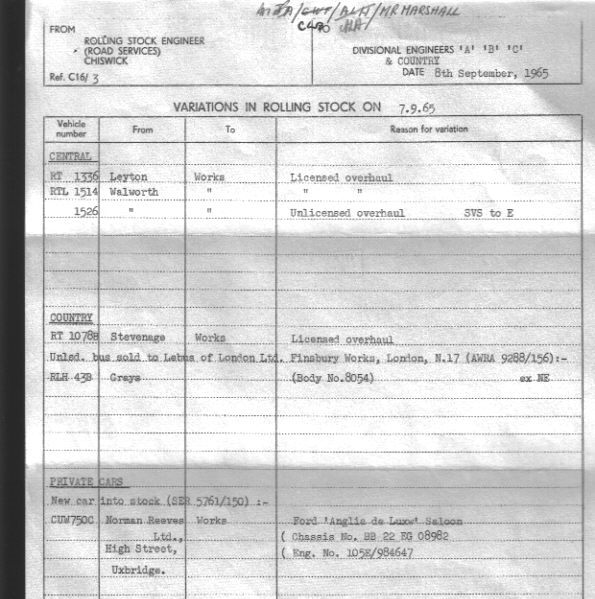 MR MARSHALL
FROM
ROLLING STOCK ENGINEER
(ROAD SERVICES)
CHISWICK
Ref. C16/ 3
DIVISIONAL ENGINEERS 'A' 'B' 'C'
& COUNTRY
DATE 8th September, 1965
VARIATIONS IN ROLLING STOCK ON 7.9.65
Vehicle number From To Reason for variation
CENTRAL
RT 1336 Leyton Works Licensed overhaul
RTL 1514 Walworth " " "
1526 " " Unlicensed overhaul SVS to E
COUNTRY
RT 1078B Stevenage Works Licensed overhaul
Unlsd. bus sold to Lebus of London Ltd. Finsbury Works, London, N.17 (AWRA 9288/156):-
RLH 43B Grays (Body No.8054) ex NE
PRIVATE CARS
New car into stock (SER 5761/150) :-
CUW750C Norman Reeves Works Ford 'Anglia de Luxe' Saloon
Ltd., ( Chassis No. BB 22 EG 08982
High Street, ( Eng. No. 105E/984647
Uxbridge.